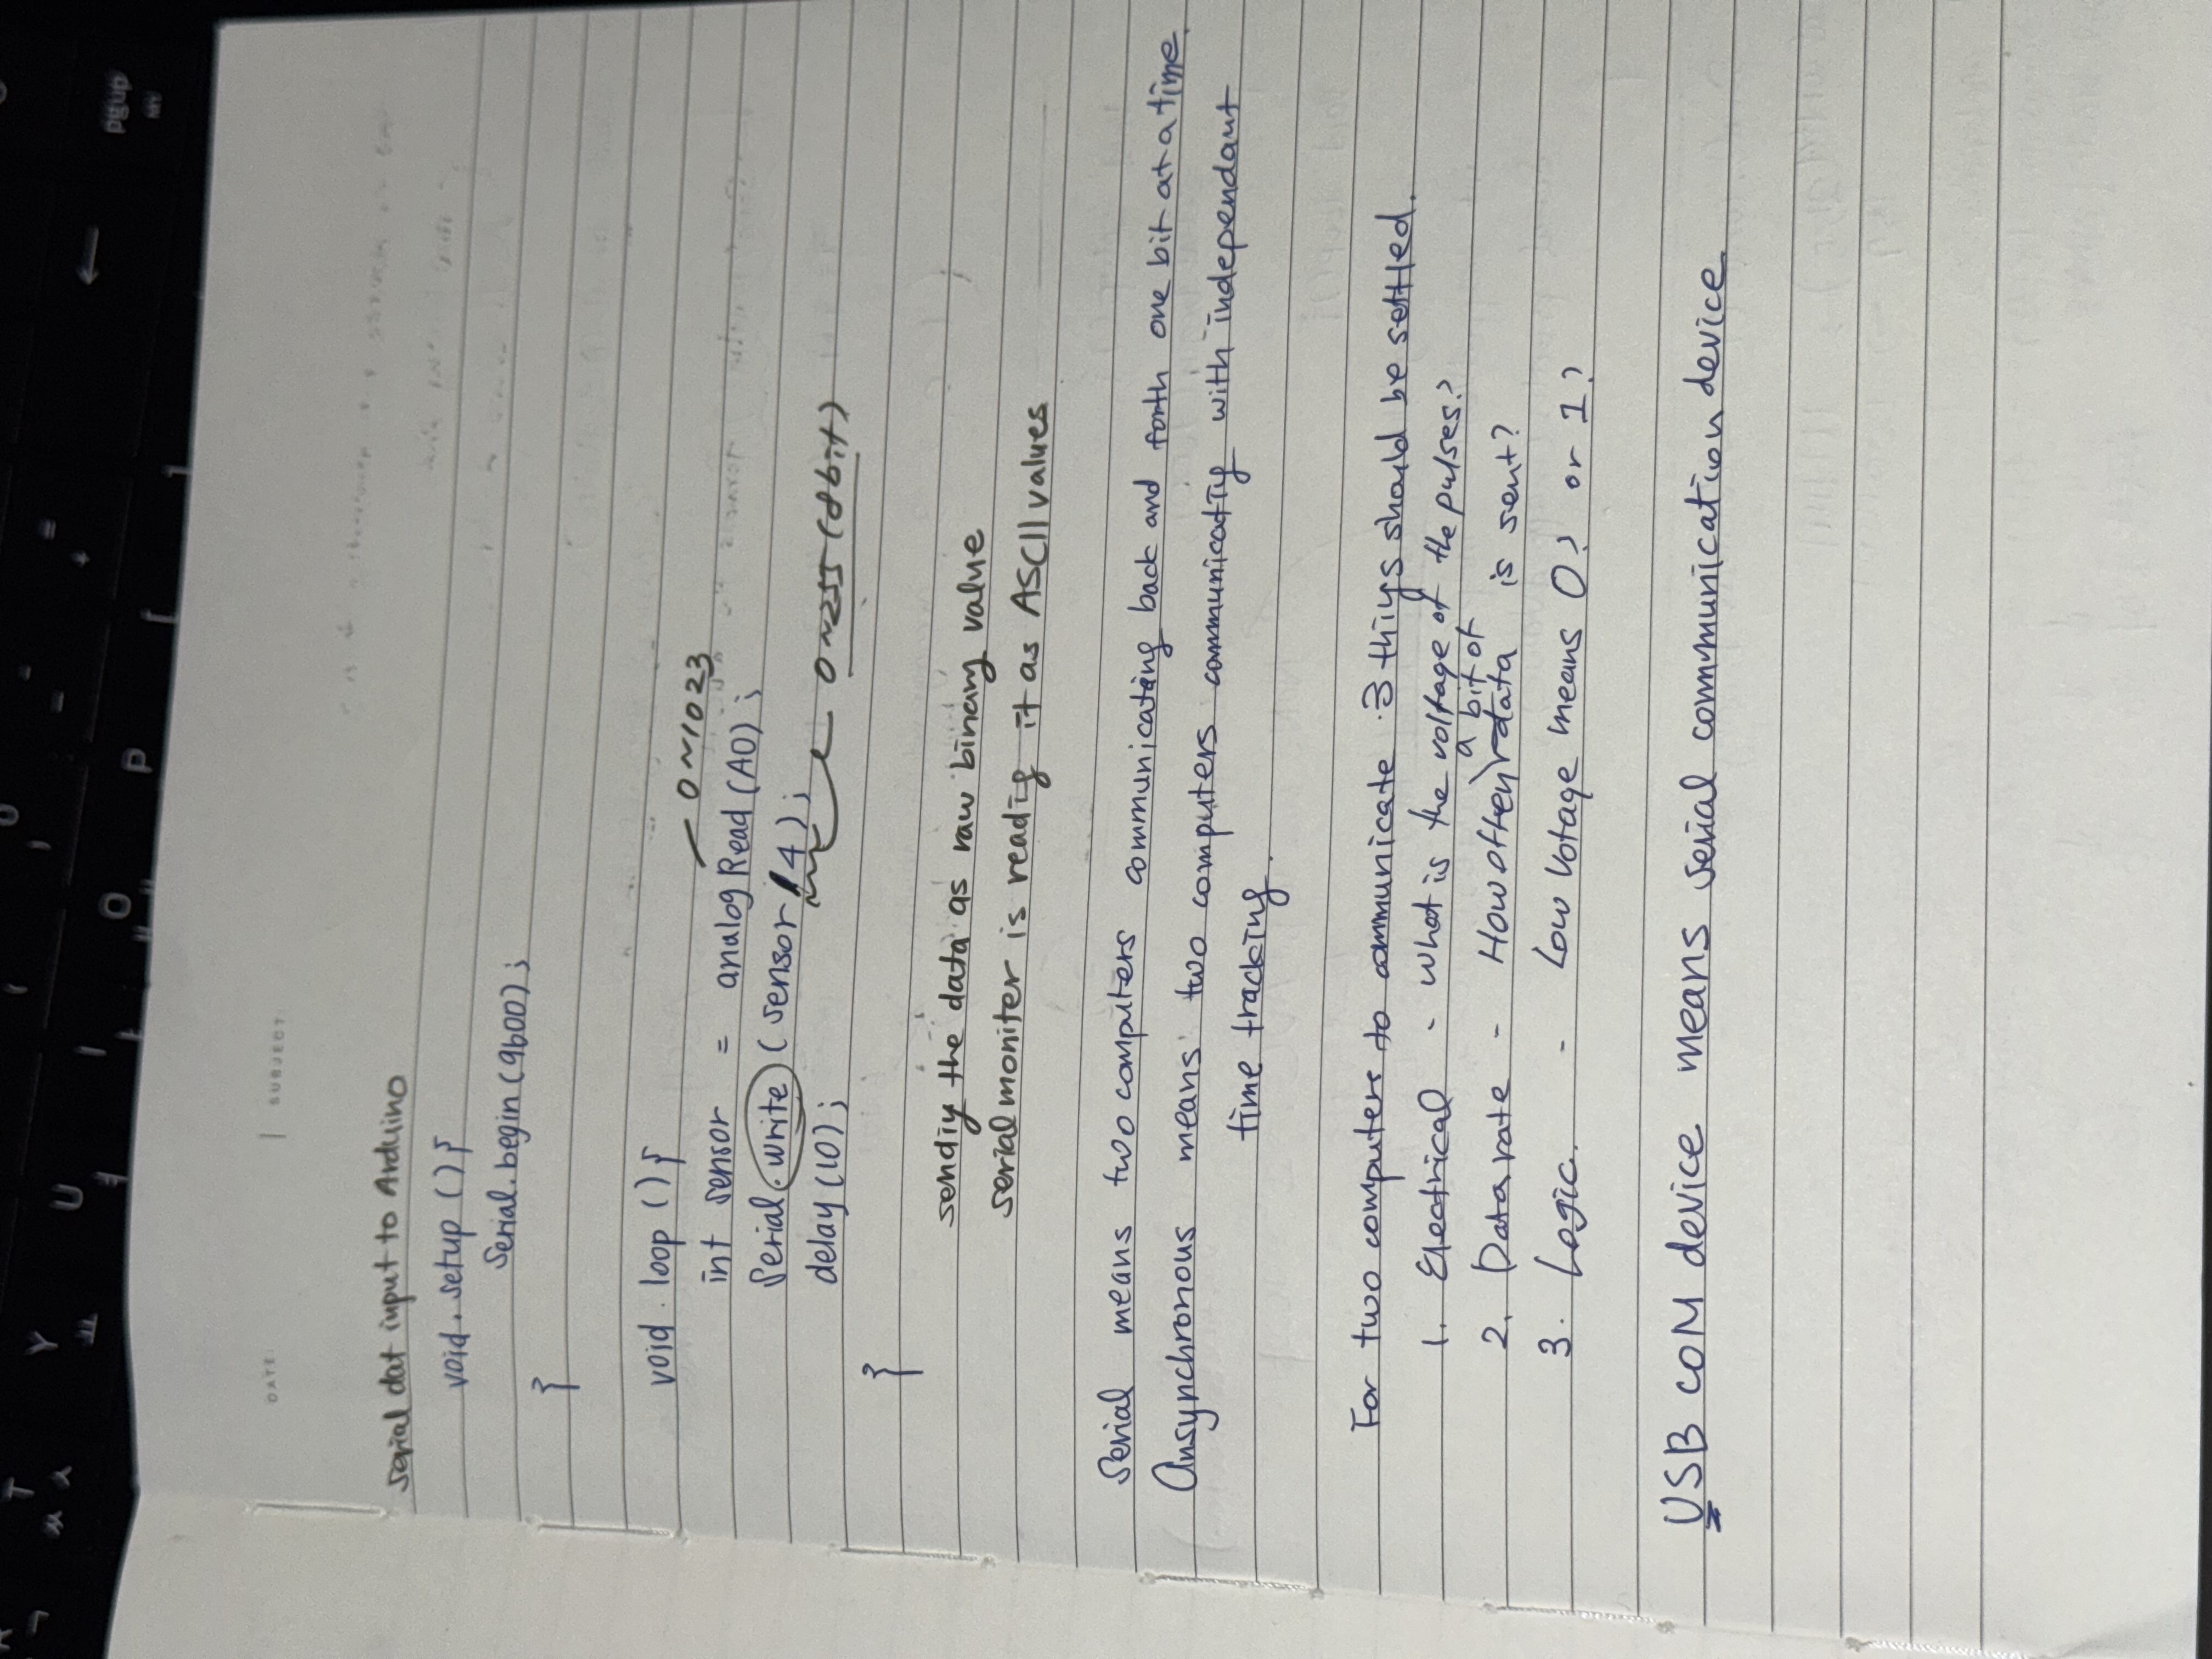 DATE | SUBJECT
serial dat input to Arduino
void. setup () {
Serial. begin (9600);
}
void loop () {
— 0~1023
int sensor = analog Read (A0);
Serial .write ( sensor /4);
0~255 (8bit)
delay (10);
}
sendig the data as raw binary value
serial moniter is readig it as ASCII values
Serial means two computers communicating back and forth one bit at a time.
Ansynchronous means two computers communicatig with independant
time tracking.
For two computers to communicate 3 thigs should be settled.
1. Electrical - what is the voltage of the pulses?
a bit of
2. Data rate - How often data is sent?
3. Logic. - Low Votage means 0? or 1?
USB COM device means serial communication device
pgup
←
= +
- _
[
]
P
O
U
Y
T